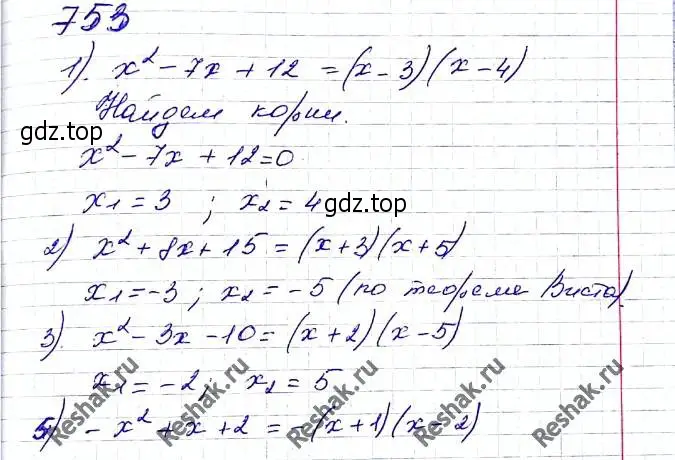 753
1). x² - 7x + 12 = (x - 3)(x - 4)
Найдем корни.
gdz.top
x² - 7x + 12 = 0
x₁ = 3 ; x₂ = 4
gdz.top
2) x² + 8x + 15 = (x + 3)(x + 5)
x₁ = -3 ; x₂ = -5 (по теореме Виета).
3). x² - 3x - 10 = (x + 2)(x - 5)
x₁ = -2, x₂ = 5
Reshak.ru Reshak.ru Reshak.ru Reshak.ru
5) -x² + x + 2 = -(x + 1)(x - 2)